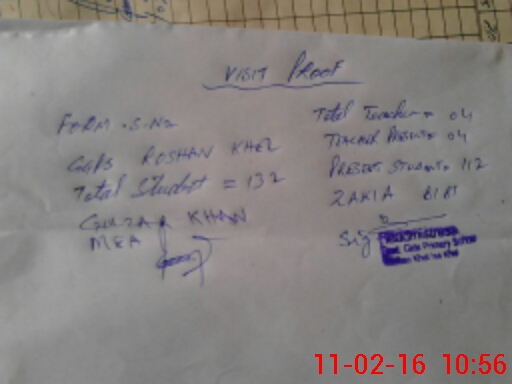 VISIT PROOF
FORM .S.No
GGPS ROSHAN KHEL
Total Student = 132
GULZAR KHAN
MEA
Total Teacher = 04
TEACHER PRESENT = 04
PRESENT STUDENT = 112
ZAKIA BIBI
Sig
Girls Primary School
11-02-16 10:56